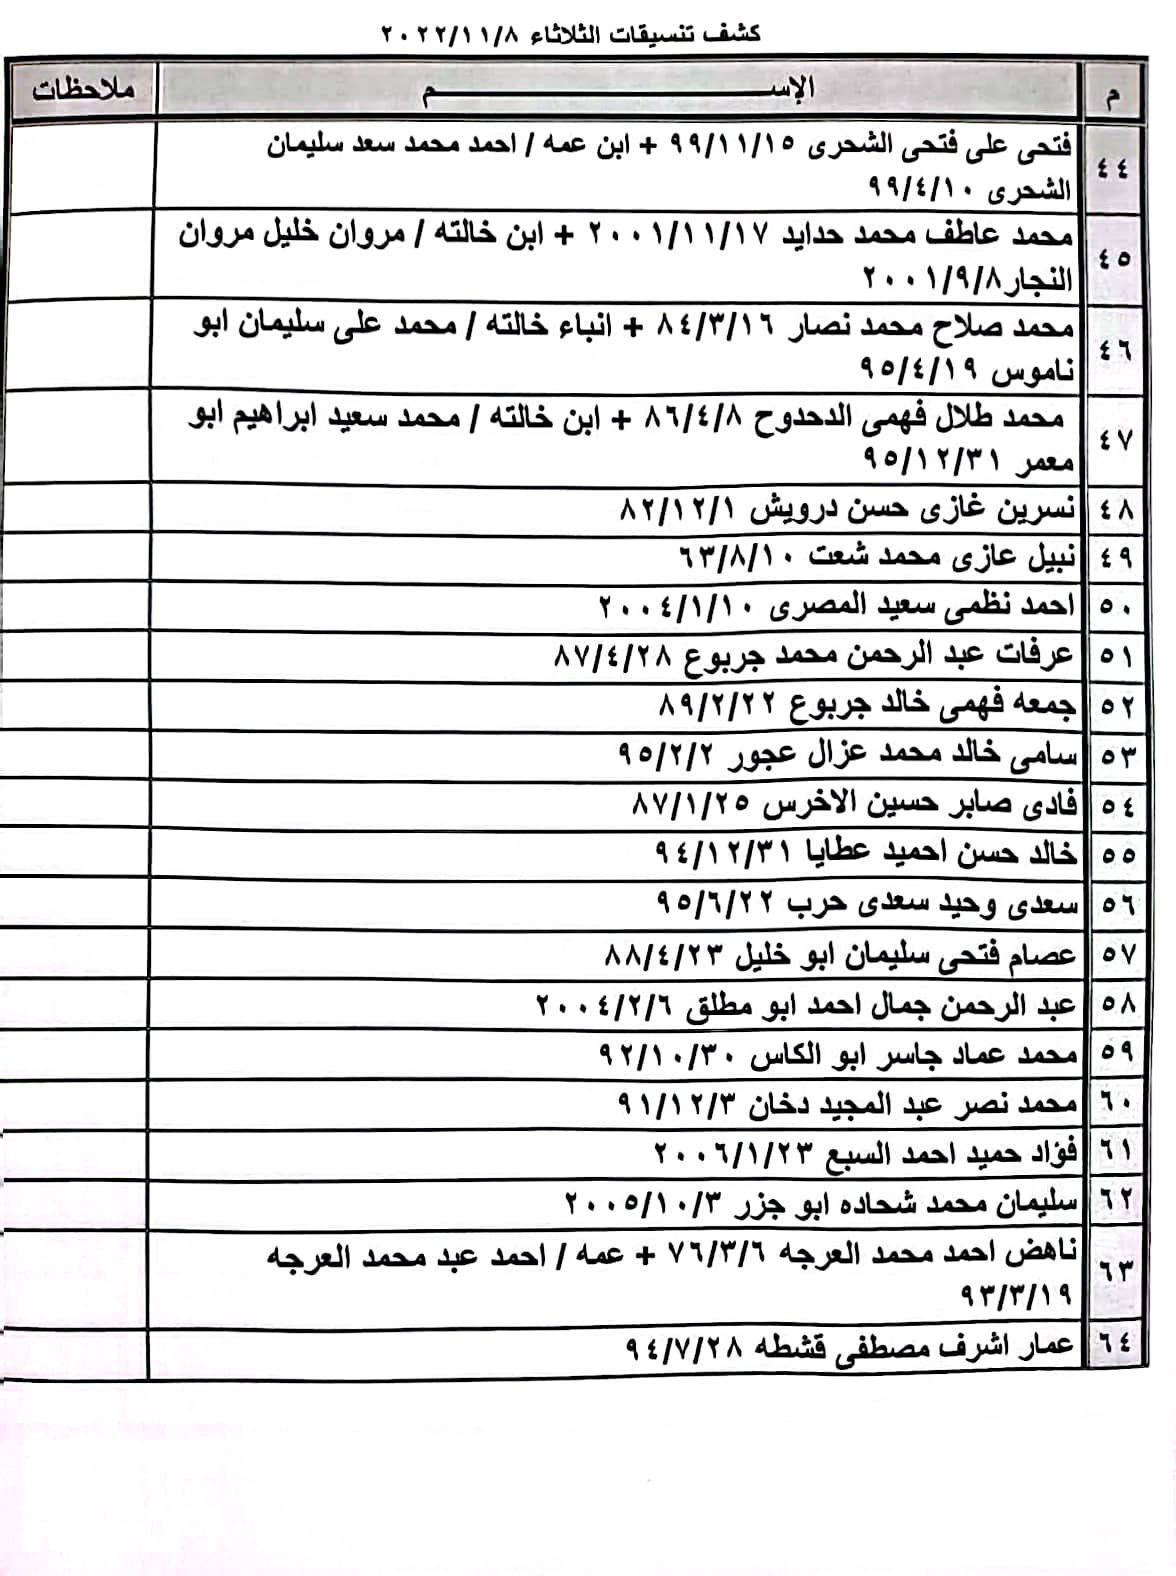 كشف تنسيقات الثلاثاء ٢٠٢٢/١١/٨
م الإســـــــــــــــم ملاحظات
٤٤ فتحى على فتحى الشحرى ٩٩/١١/١٥ + ابن عمه / احمد محمد سعد سليمان
الشحرى ٩٩/٤/١٠
٤٥ محمد عاطف محمد حدايد ٢٠٠١/١١/١٧ + ابن خالته / مروان خليل مروان
النجار ٢٠٠١/٩/٨
٤٦ محمد صلاح محمد نصار ٨٤/٣/١٦ + انباء خالته / محمد على سليمان ابو
ناموس ٩٥/٤/١٩
٤٧ محمد طلال فهمى الدحدوح ٨٦/٤/٨ + ابن خالته / محمد سعيد ابراهيم ابو
معمر ٩٥/١٢/٣١
٤٨ نسرين غازى حسن درويش ٨٢/١٢/١
٤٩ نبيل عازى محمد شعت ٦٣/٨/١٠
٥٠ احمد نظمى سعيد المصرى ٢٠٠٤/١/١٠
٥١ عرفات عبد الرحمن محمد جربوع ٨٧/٤/٢٨
٥٢ جمعه فهمى خالد جربوع ٨٩/٢/٢٢
٥٣ سامى خالد محمد عزال عجور ٩٥/٢/٢
٥٤ فادى صابر حسين الاخرس ٨٧/١/٢٥
٥٥ خالد حسن احميد عطايا ٩٤/١٢/٣١
٥٦ سعدى وحيد سعدى حرب ٩٥/٦/٢٢
٥٧ عصام فتحى سليمان ابو خليل ٨٨/٤/٢٣
٥٨ عبد الرحمن جمال احمد ابو مطلق ٢٠٠٤/٢/٦
٥٩ محمد عماد جاسر ابو الكاس ٩٢/١٠/٣٠
٦٠ محمد نصر عبد المجيد دخان ٩١/١٢/٣
٦١ فؤاد حميد احمد السبع ٢٠٠٦/١/٢٣
٦٢ سليمان محمد شحاده ابو جزر ٢٠٠٥/١٠/٣
٦٣ ناهض احمد محمد العرجه ٧٦/٣/٦ + عمه / احمد عبد محمد العرجه
٩٣/٣/١٩
٦٤ عمار اشرف مصطفى قشطه ٩٤/٧/٢٨